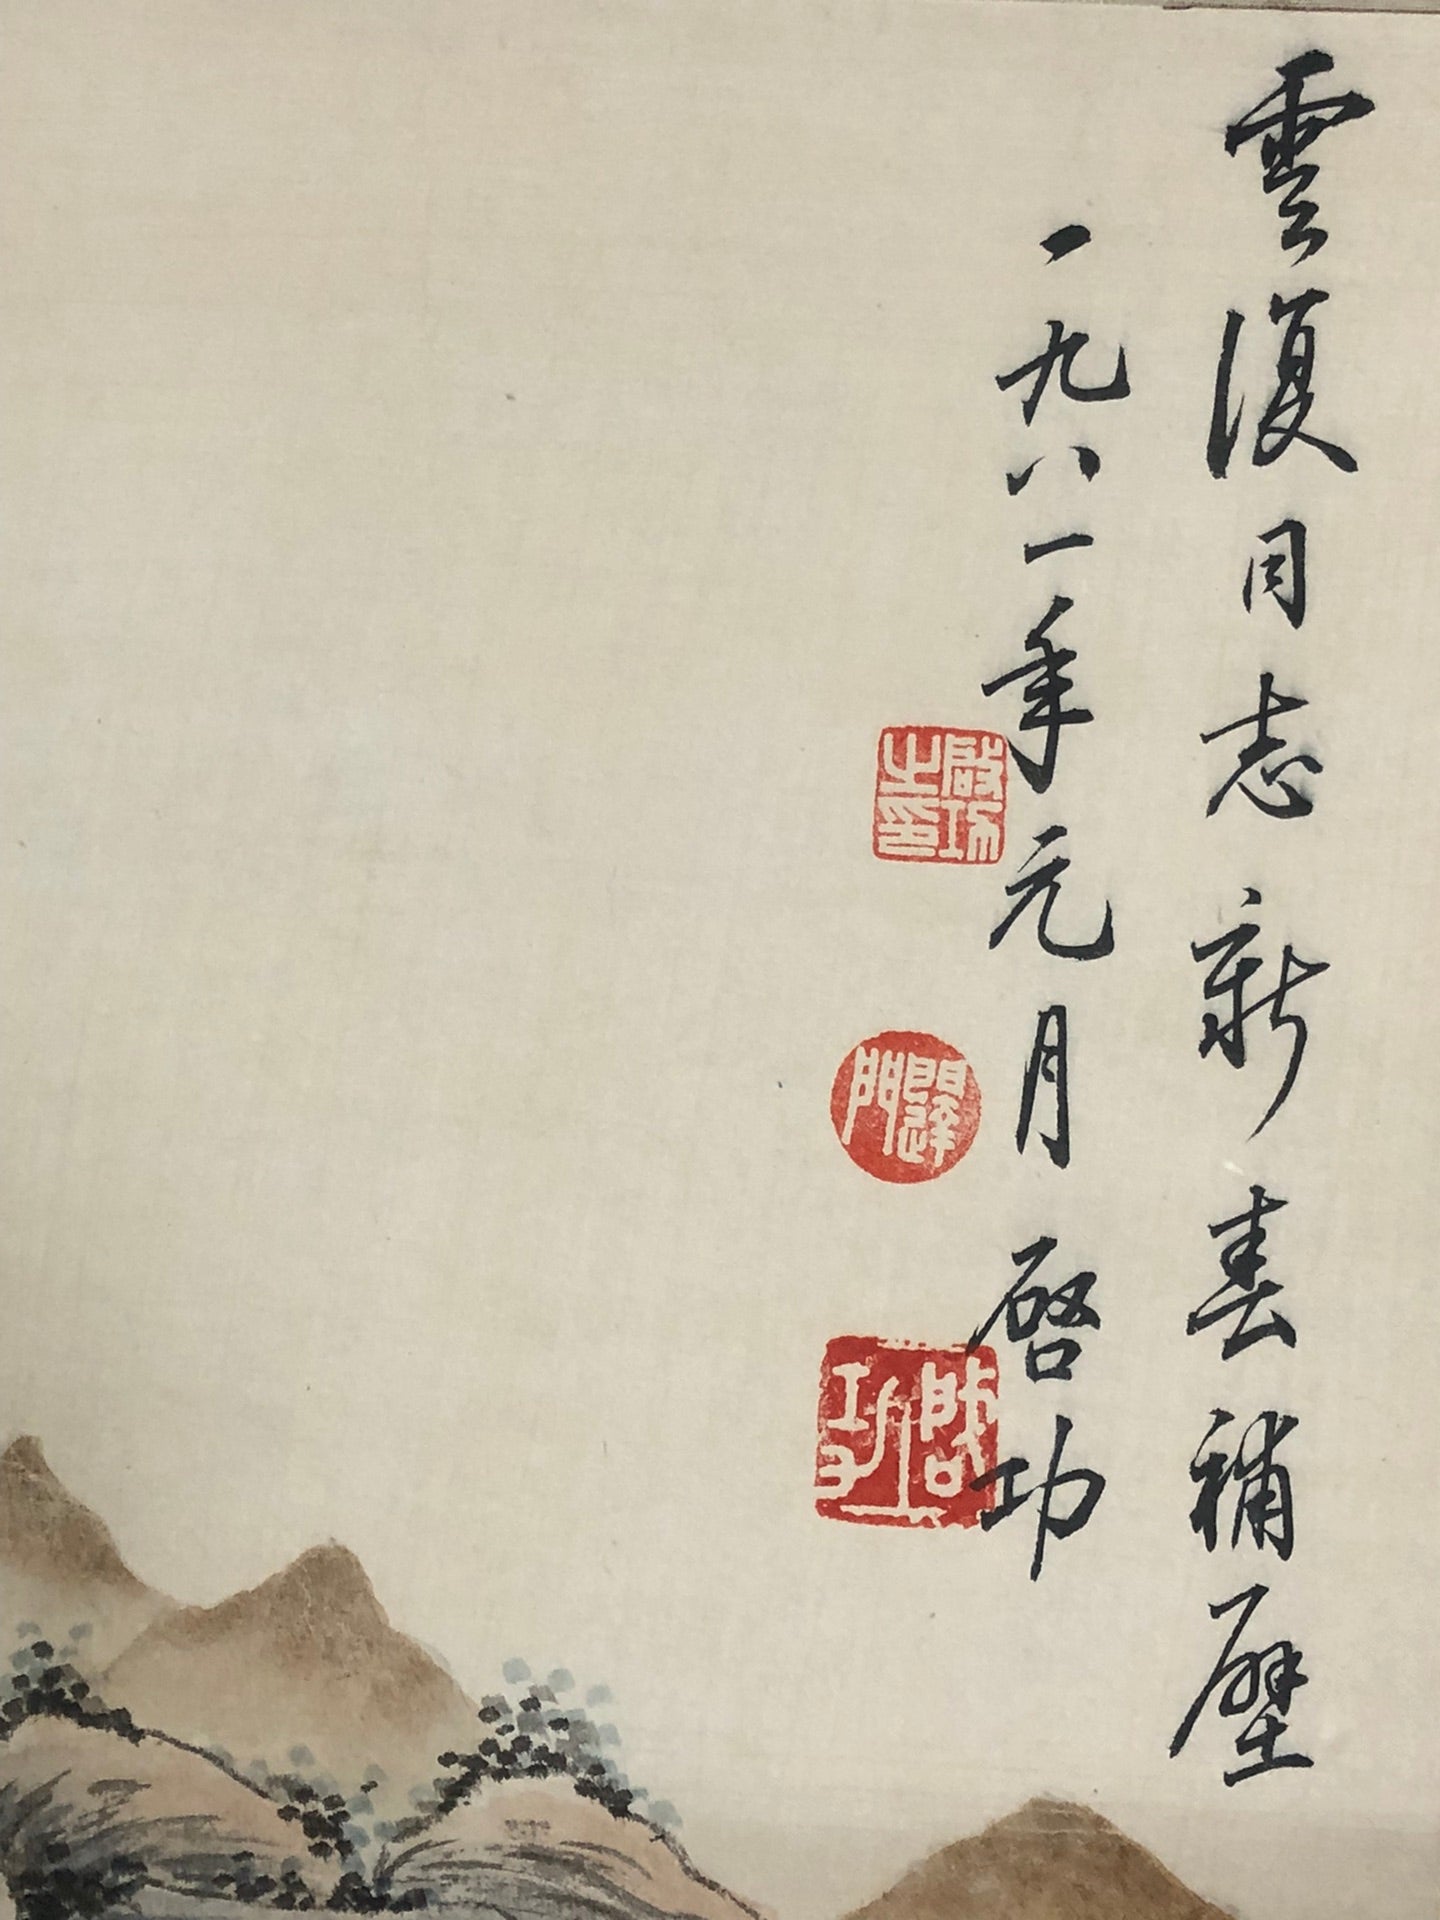 雲復同志新春補壁
一九八一年元月啓功
啓功之印
啓功